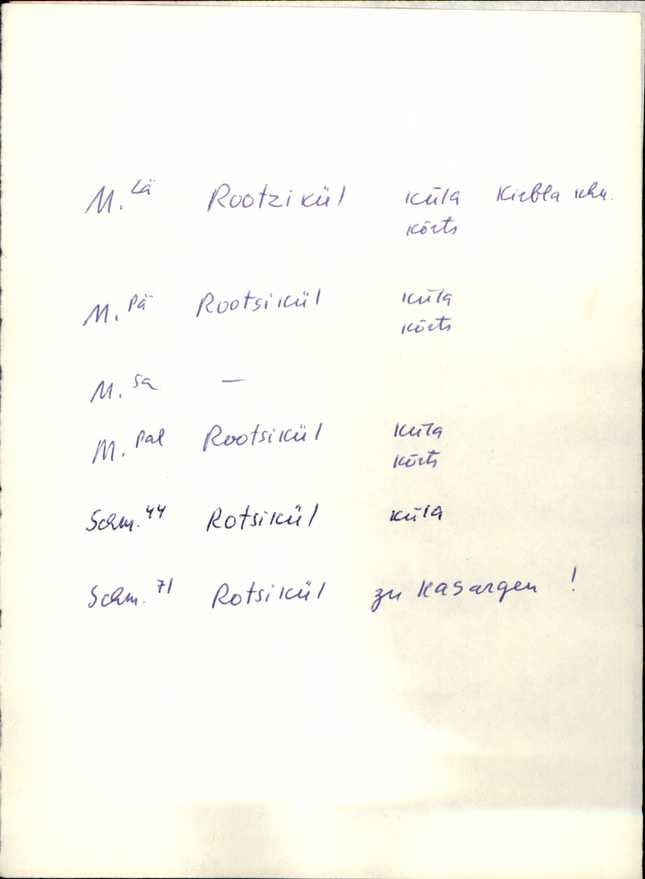 M. Lä Rootzikül küla Kirbla khu.
kõrts
M. Pä Rootsikül küla
kõrts
M. Sa —
M. Pal Rootsikül küla
kõrts
Schm. 44 Rotsikül küla
Schm. 71 Rotsikül zu Kasargen !